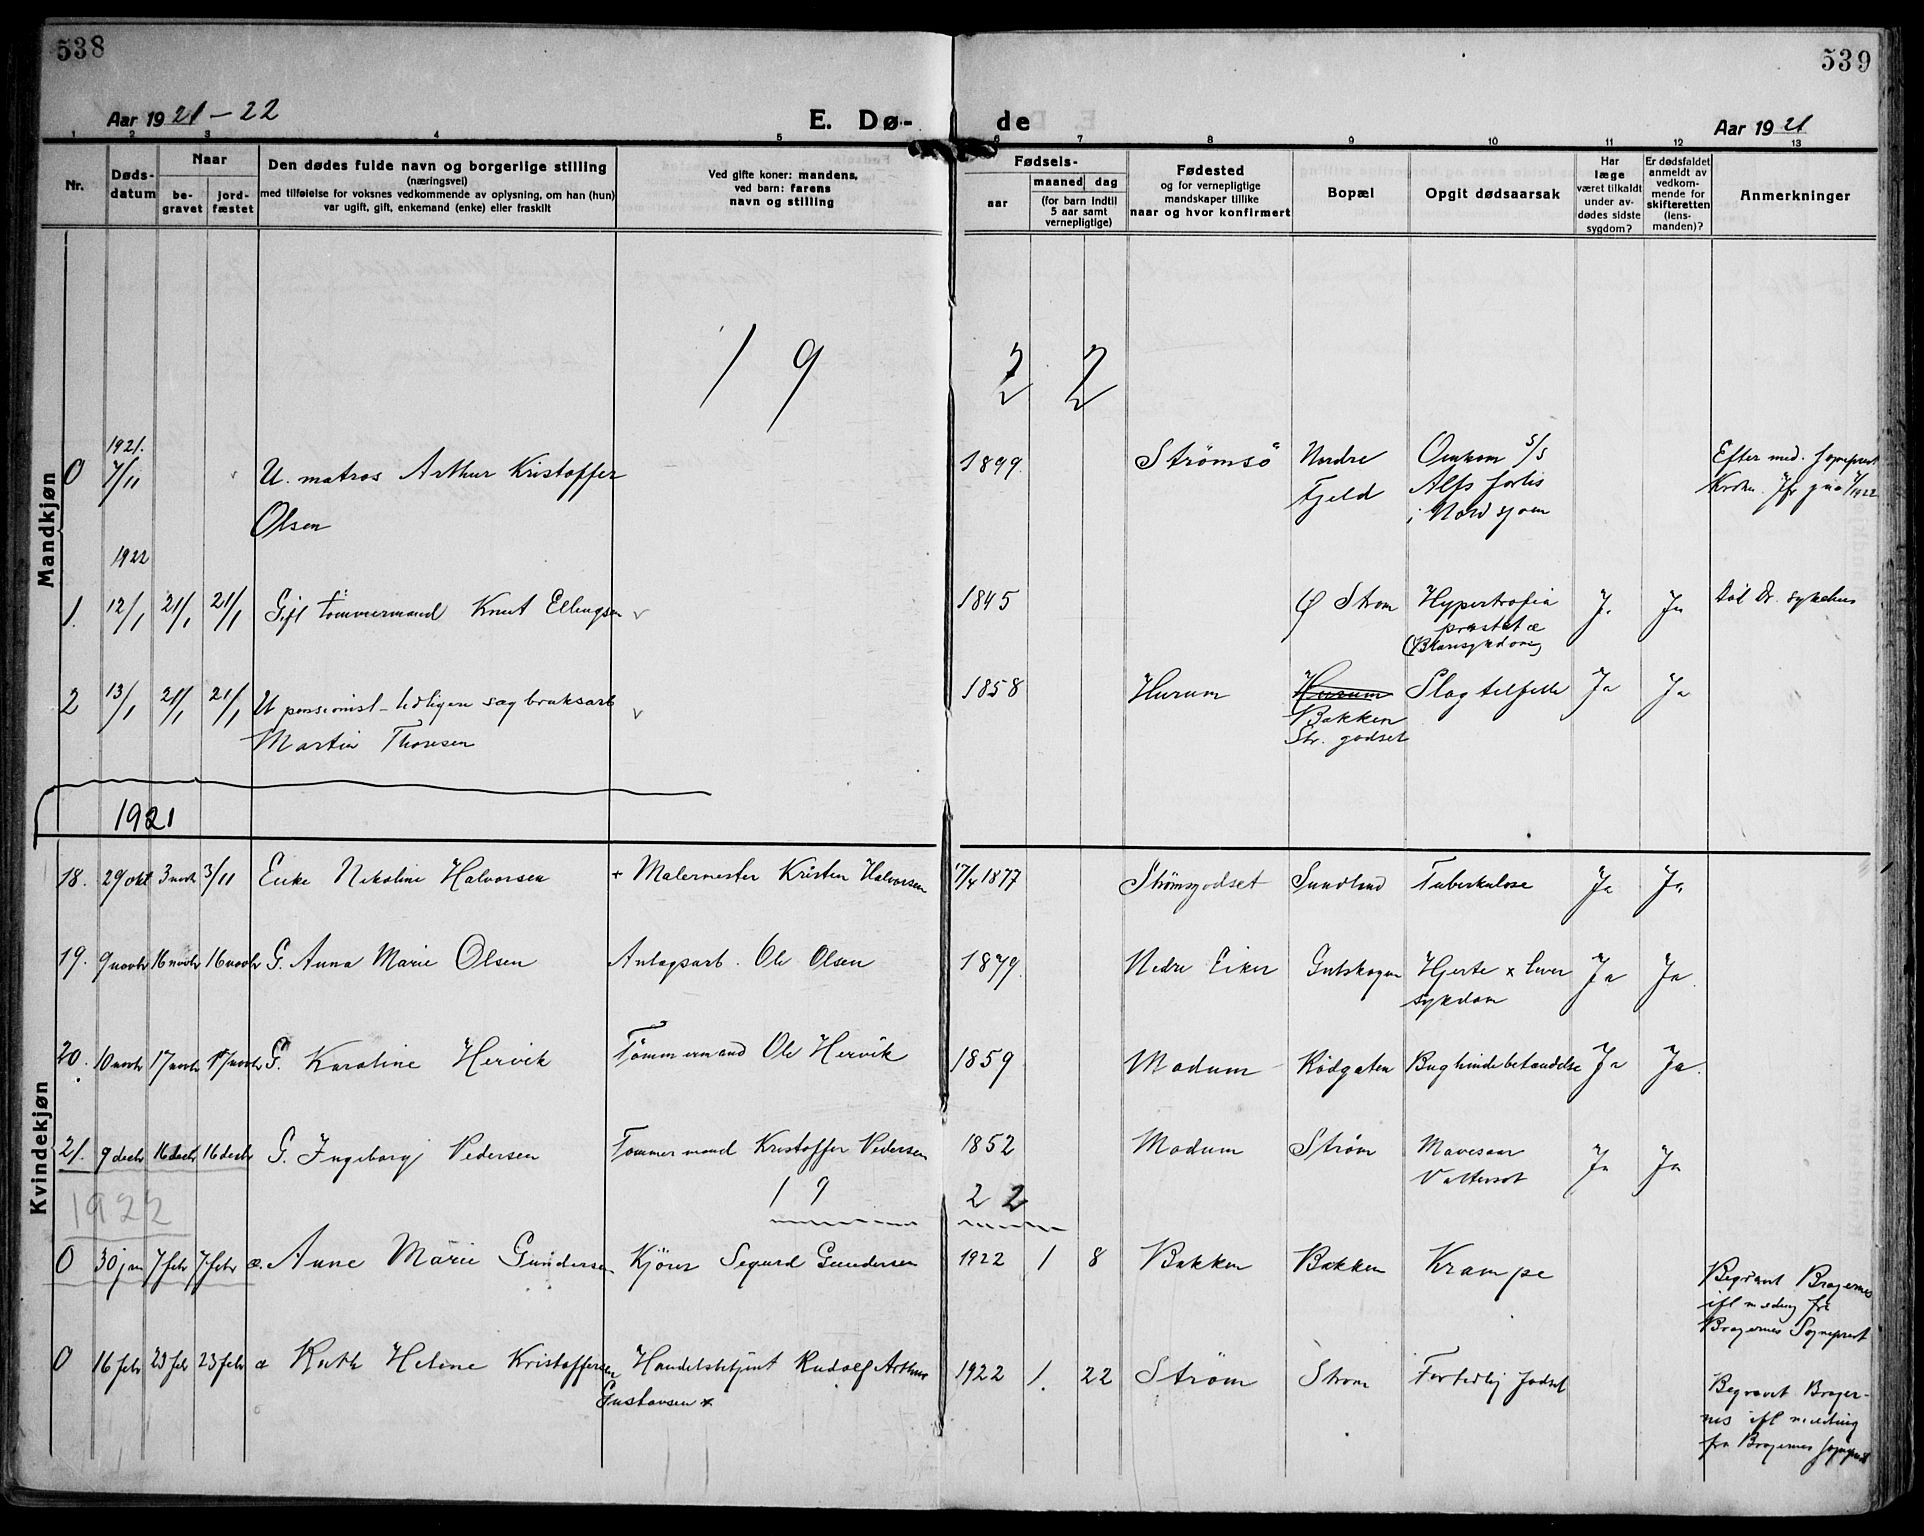 538
539
Aar 1921-22
E. Dø-
de
Aar 1921
1 2 3 4 5 6 7 8 9 10 11 12 13
Nr.
Døds-
datum
Naar
be-
gravet
jord-
fæstet
Den dødes fulde navn og borgerlige stilling
(næringsvei)
med tilføielse for voksnes vedkommende av oplysning, om han (hun)
var ugift, gift, enkemand (enke) eller fraskilt
Ved gifte koner: mandens,
ved barn: farens
navn og stilling
Fødsels-
aar
maaned
dag
(for barn indtil
5 aar samt
vernepligtige)
Fødested
og for vernepligtige
mandskaper tillike
naar og hvor konfirmert
Bopæl
Opgit dødsaarsak
Har
læge
været tilkaldt
under av-
dødes sidste
sygdom?
Er dødsfaldet
anmeldt av
vedkom-
mende for
skifteretten
(lens-
manden)?
Anmerkninger
19 22
Mandkjøn
1921.
0 7/11 U. matros Arthur Kristoffer 1899 Strømsö Nordre Omkom S/S Efter med. sogneprest
Olsen Fjeld Alfs forlis
i Nordsjøen
1922
1. 12/1 21/1 21/1 Gift tømmermand Knut Ellingsen v 1845 Ø Strøm Hypertrofia J. Ja Død Dr. sykehus
prostatæ
(Blæresykdom)
2 13/1 21/1 21/1 U pensionist - tidligere sagbruksarb v 1858 Hurum Hurum Slagtilfelle Ja Ja
Martin Thoresen Bakken
Str. godset
1921
Kvindekjøn
18. 29 okt 3 novb 3/11 Enke Nikoline Halvorsen + Malermester Kristen Halvorsen 17/4 1877 Strømsgodset Sundland Tuberkulose Ja Ja
19. 9 novbr 16 novbr 16 novbr G. Anna Marie Olsen Anlægsarb. Ole Olsen 1879. Nedre Eiker Gulskogen Hjerte x lever Ja Ja
sykdom
20. 10 novbr 17 novbr 17 novbr G. Karoline Hervik Tömmermand Ole Hervik 1859 Modum Rödgaten Bughindebetændelse Ja Ja.
21. 9 decbr 16 decbr 16 decbr G. Ingeborg Pedersen Tømmermand Kristoffer Pedersen 1852 Modum Strøm Mavesaar Ja Ja
Vattersot
19 22
1922
0 30 jan 7 febr 7 febr æ. Anne Marie Gundersen Kjører Sigurd Gundersen 1922 1 8 Bakken Bakken Krampe
Begravet Bragernes
ifl melding fra
Bragernes Sogneprest
0 16 febr 23 febr 23 febr æ Ruth Helene Kristoffersen Handelsbetjent Rudolf Arthur 1922 1. 22 Strøm Strøm For tidlig fødsel
Gustavsen x
Begravet Brager-
nes ifl melding
fra Bragernes sogneprest